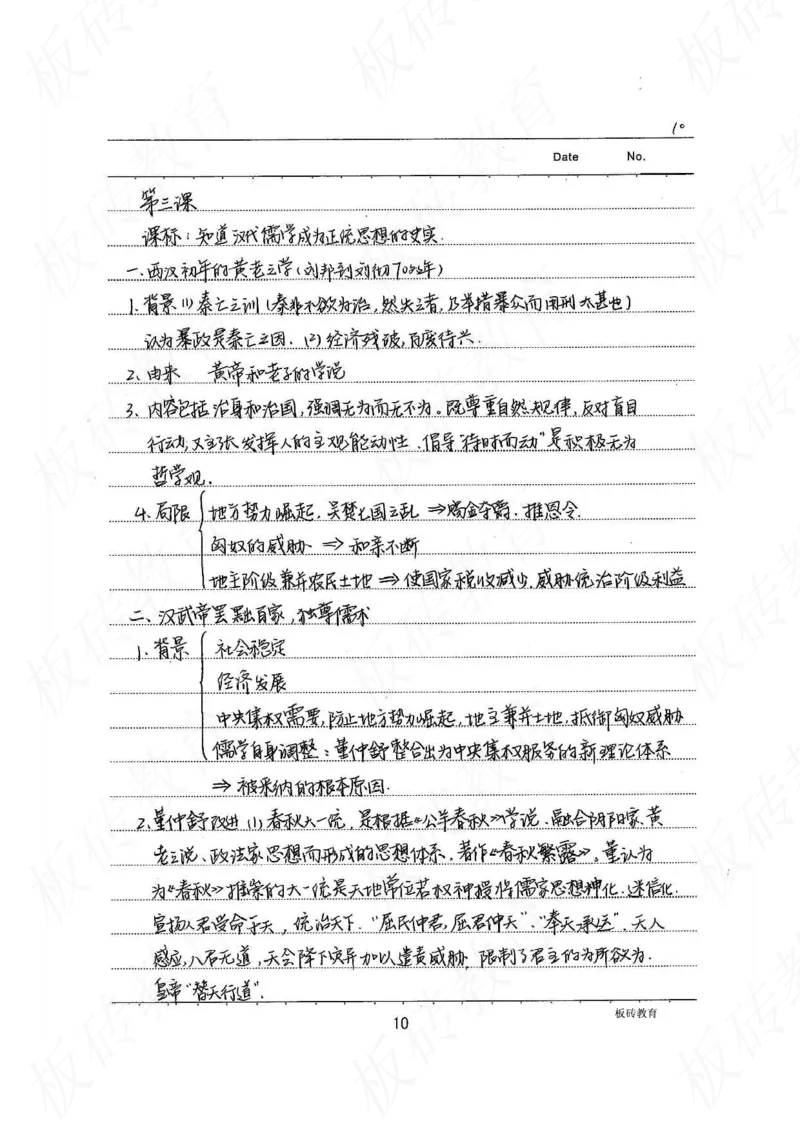 10
Date No.
第三课
课标：知道汉代儒学成为正统思想的史实.
一.西汉初年的黄老之学(刘邦到刘彻70多年)
1.背景(1)秦亡之训(秦非不欲为治,然失之者,乃举措暴众而用刑太甚也)
认为暴政是秦亡之因.(2)经济残破,百废待兴.
2.由来 黄帝和老子的学说
3.内容包括治身和治国,强调无为而无不为。既尊重自然规律,反对盲目
行动,又主张发挥人的主观能动性.倡导"待时而动"是积极无为
哲学观.
4.局限 地方势力崛起.吴楚七国之乱⇒酎金夺爵.推恩令.
匈奴的威胁⇒和亲不断
地主阶级兼并农民土地⇒使国家税收减少.威胁统治阶级利益
二、汉武帝罢黜百家,独尊儒术
1.背景 社会稳定
经济发展
中央集权需要,防止地方势力崛起,地主兼并土地,抵御匈奴威胁
儒学自身调整:董仲舒整合出为中央集权服务的新理论体系
⇒被采纳的根本原因.
2.董仲舒改进(1)春秋大一统,是根据《公羊春秋》学说.融合阴阳家.黄
老之说、政法家思想而形成的思想体系,著作《春秋繁露》.董认为
为《春秋》推崇的大一统是天地常位君权神授将儒家思想神化.迷信化.
宣扬人君受命于天,统治天下."屈民伸君,屈君伸天"."奉天承运".天人
感应,人君无道,天会降下灾异加以谴责威胁.限制了君主的为所欲为.
皇帝"替天行道".
10
板砖教育